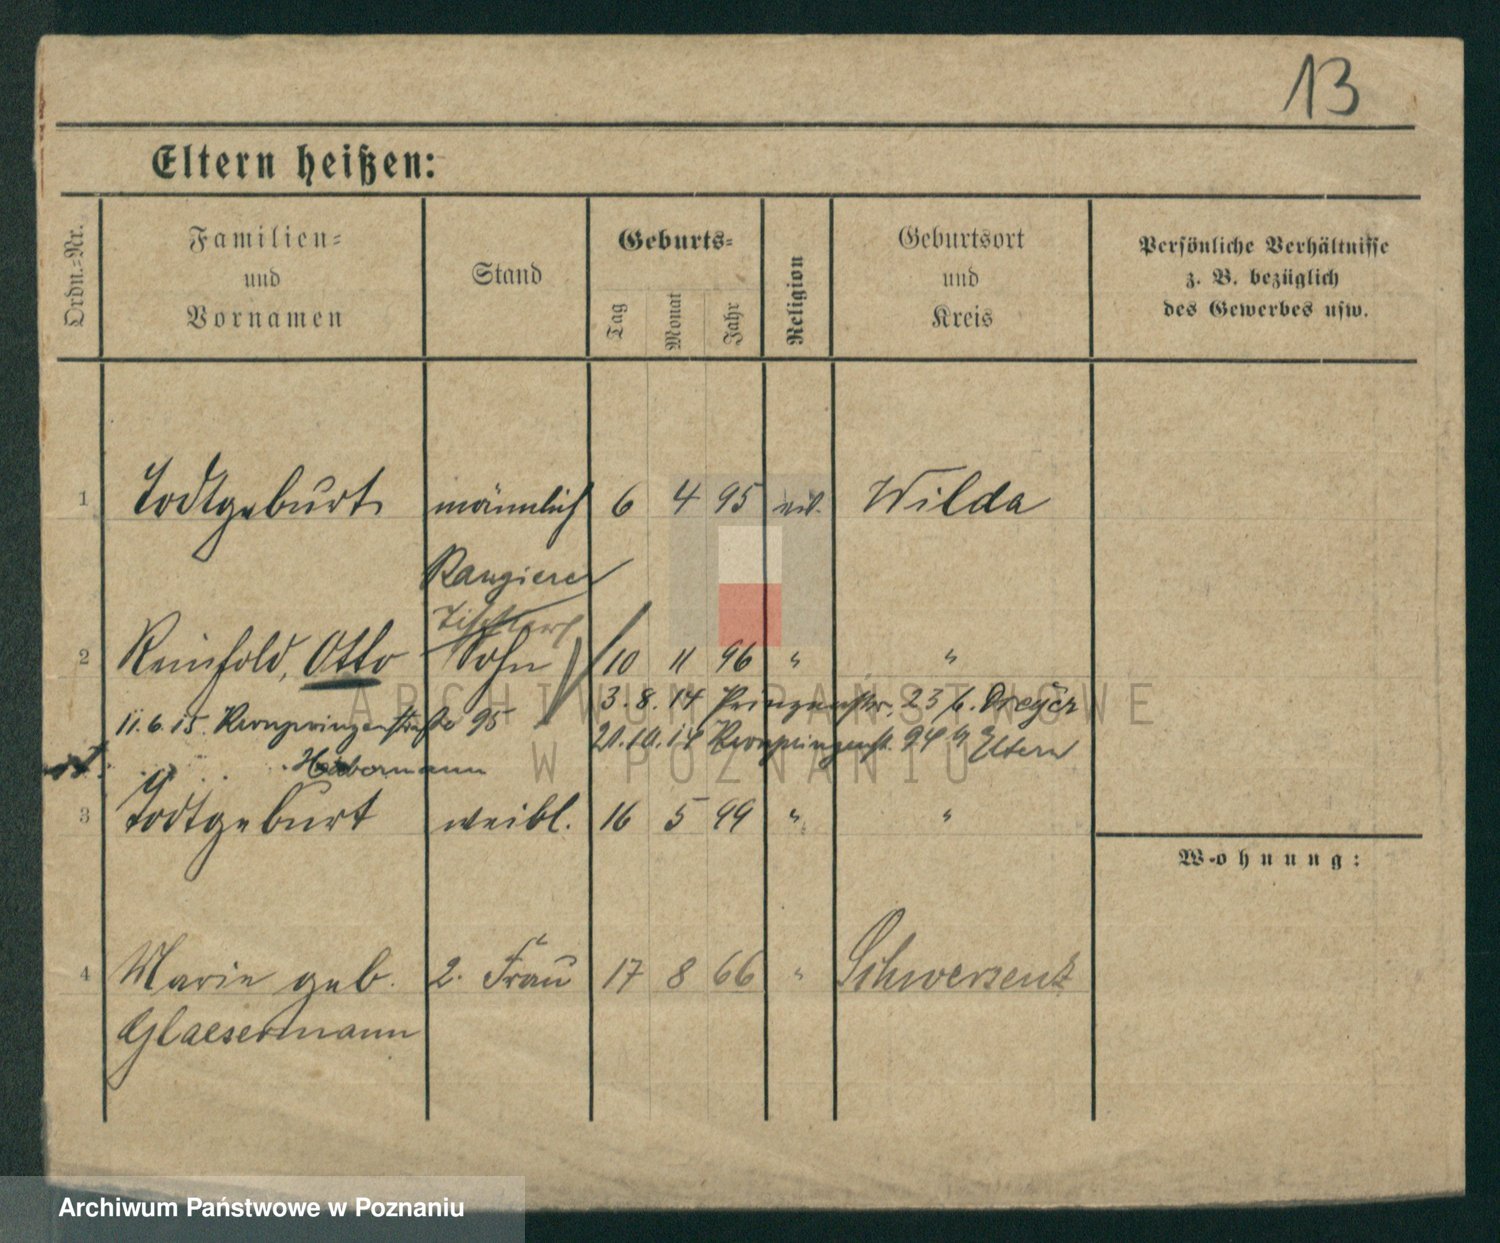 13
Eltern heißen:
Ordn.-Nr.
Familien-
und
Vornamen
Stand
Geburts-
Tag
Monat
Jahr
Religion
Geburtsort
und
Kreis
Persönliche Verhältnisse
z. B. bezüglich
des Gewerbes usw.
1 Todtgeburt männlich 6 4 95 Wilda
Rangierer
2 Reinhold, Otto Sohn 10 11 96 " "
3. 8. 14 Prinzenstr. 23 b. Dreyer
11.6.15. Kronprinzenstraße 95
21.10.14 Kronprinzenst. 94 Eltern
Habermann
3 Todtgeburt weibl. 16 5 99 " "
Wohnung:
4 Marie geb. 2. Frau 17 8 66 " Schwersenz
Glaesermann
ARCHIWUM PAŃSTWOWE
W POZNANIU
Archiwum Państwowe w Poznaniu